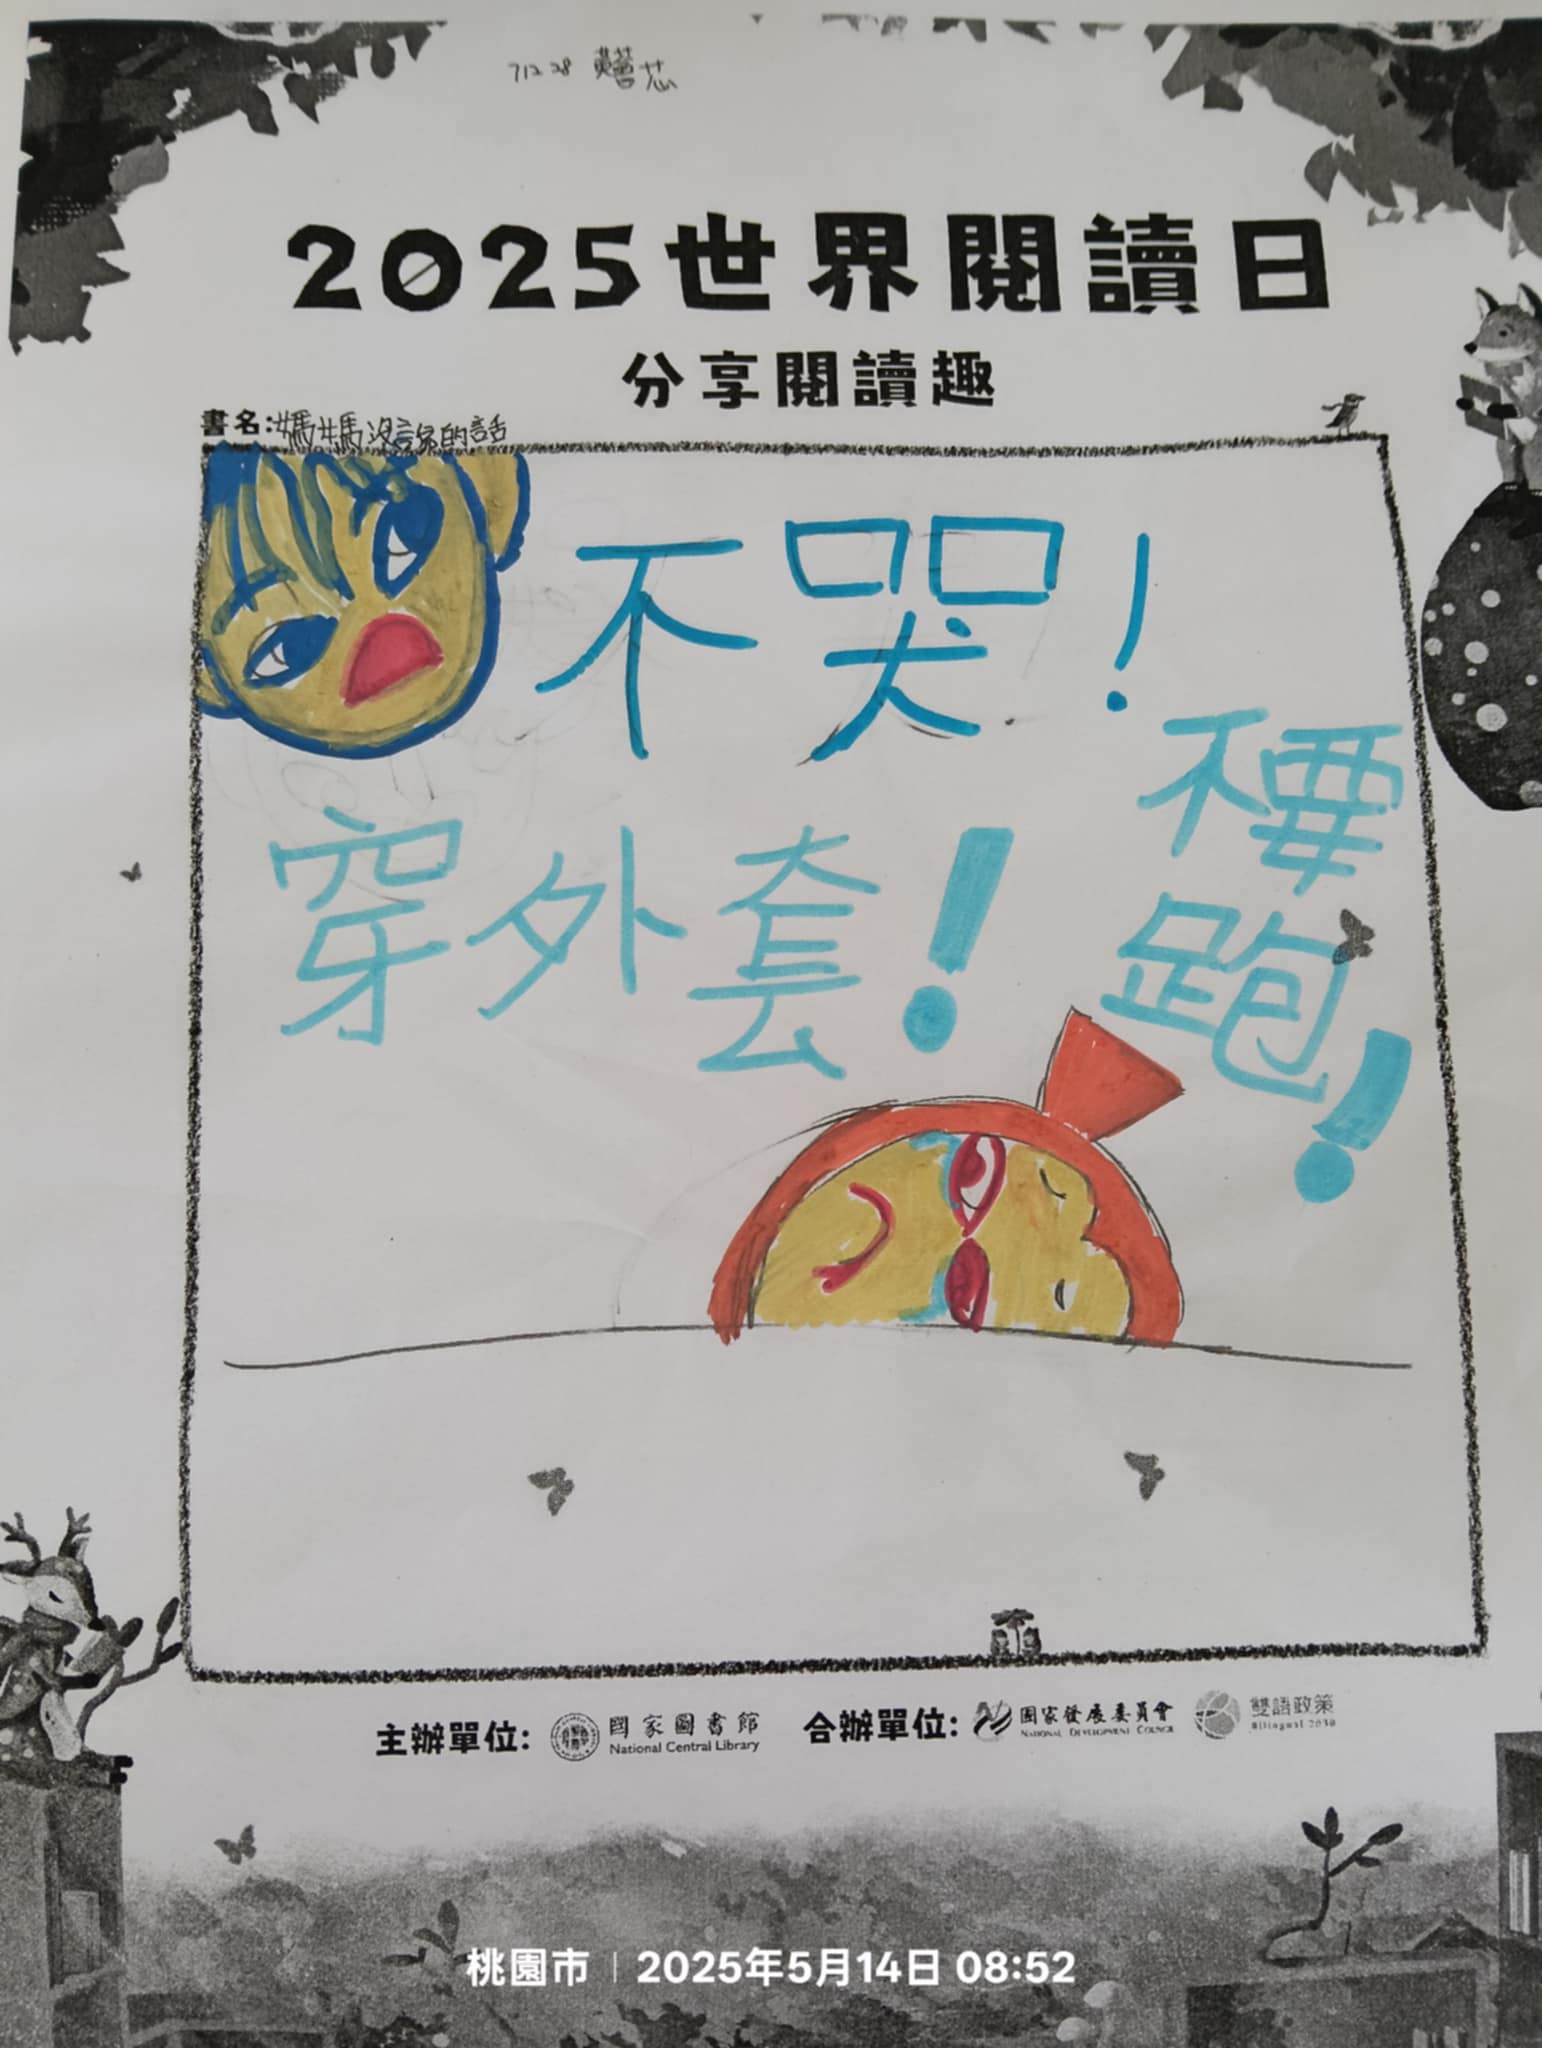 712 28 黃薏芯
2025世界閱讀日
分享閱讀趣
書名:媽媽沒說的話
不哭!
不要跑!
穿外套!
主辦單位: 國家圖書館 National Central Library 合辦單位: 國家發展委員會 NATIONAL DEVELOPMENT COUNCIL 雙語政策 Bilingual 2030
桃園市 | 2025年5月14日 08:52